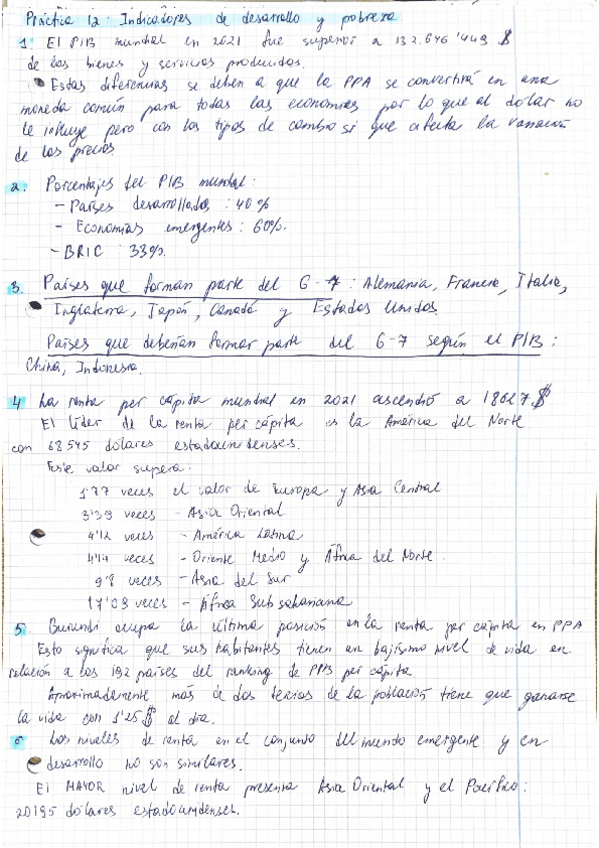 Práctica 12: Indicadores de desarrollo y pobreza
1. El PIB mundial en 2021 fue superior a 132.646'449 $
de los bienes y servicios producidos.
Estas diferencias se deben a que la PPA se convertirá en una
moneda común para todas las economías por lo que al dólar no
le influye pero con los tipos de cambio si que afecta la variación
de los precios.
2. Porcentajes del PIB mundial:
- Países desarrollados: 40%
- Economías emergentes: 60%.
- BRIC : 33%.
3. Países que forman parte del G-7: Alemania, Francia, Italia,
Inglaterra, Japón, Canadá y Estados Unidos.
Países que deberían formar parte del G-7 según el PIB:
China, Indonesia.
4 La renta per cápita mundial en 2021 ascendió a 18627 $
El líder de la renta per cápita es la América del Norte
con 68 545 dólares estadounidenses.
Este valor supera:
1'77 veces el valor de Europa y Asia Central
3'39 veces - Asia Oriental
4'12 veces - América Latina
4'14 veces - Oriente Medio y África del Norte.
9'8 veces - Asia del Sur
17'09 veces - África Subsahariana
5. Burundi ocupa la última posición en la renta per cápita en PPA
Esto significa que sus habitantes tienen un bajísimo nivel de vida en
relación a los 192 países del ranking de PPB per cápita
Aproximadamente más de dos tercios de la población tiene que ganarse
la vida con 1'25 $ al día.
6 Los niveles de renta en el conjunto del mundo emergente y en
desarrollo no son similares.
El MAYOR nivel de renta presenta Asia Oriental y el Pacífico:
20195 dólares estadounidenses.